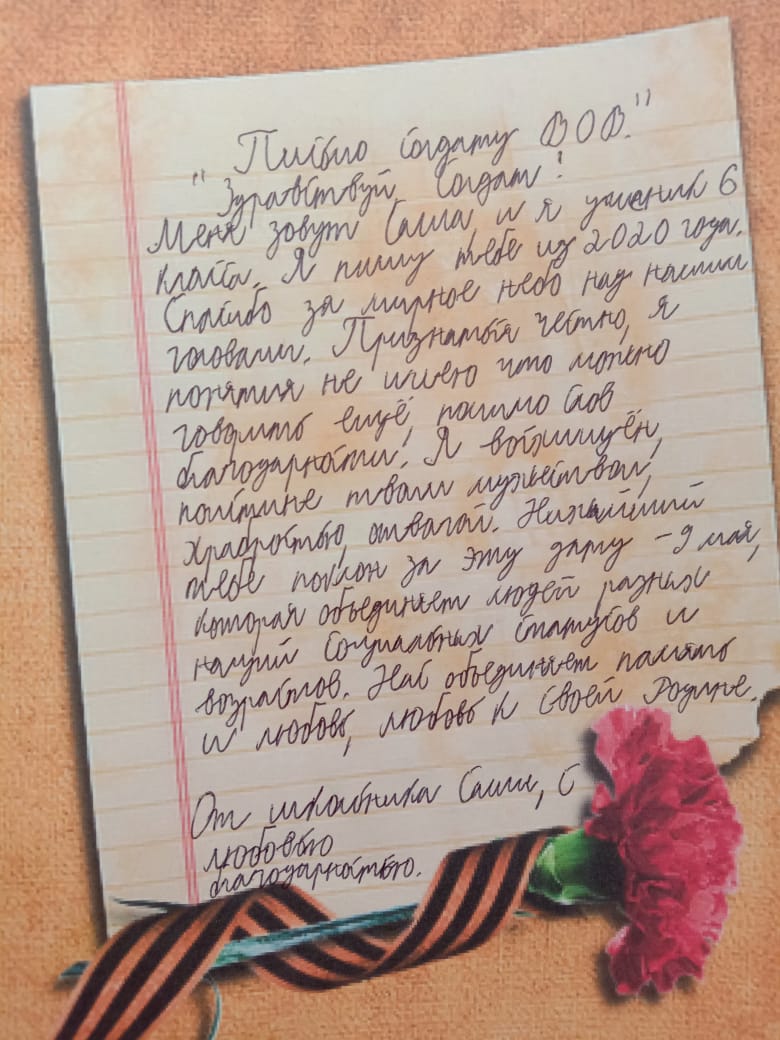 "Письмо солдату ВОВ."
Здравствуй, Солдат!
Меня зовут Саша, и я ученик 6
класса. Я пишу тебе из 2020 года.
Спасибо за мирное небо над нашими
головами. Признаться честно, я
понятия не имею что можно
говорить ещё, помимо слов
благодарности! Я восхищён,
поистине твоим мужеством,
храбростью, отвагой. Нижайший
тебе поклон за эту дату - 9 мая,
которая объединяет людей разных
наций социальных статусов и
возрастов. Нас объединяет память
и любовь, любовь к своей Родине.
От школьника Саши, с
любовью
благодарностью.